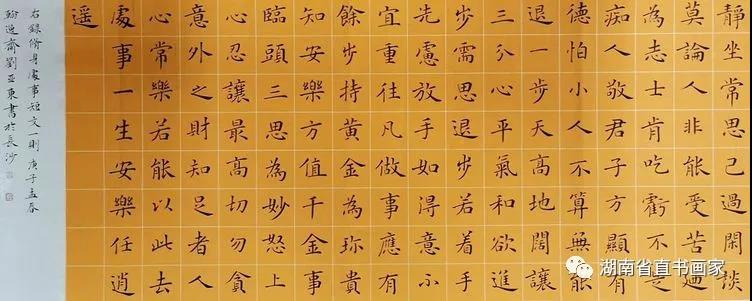 靜坐常思己過閑談
莫論人非能受苦廼
為志士肯吃虧不是
痴人敬君子方顯有
德怕小人不算無能
退一步天高地闊讓
三分心平氣和欲進
步需思退步若着手
先慮放手如得意不
宜重往凡做事應有
餘步持黃金為珎貴
知安樂方值千金事
臨頭三思為妙怒上
心忍讓最高切勿貪
意外之財知足者人
心常樂若能以此去
處事一生安樂任逍
遥
右録脩身處事短文一則庚子孟春
翰逸齋劉亞東書於長沙
湖南省直书画家